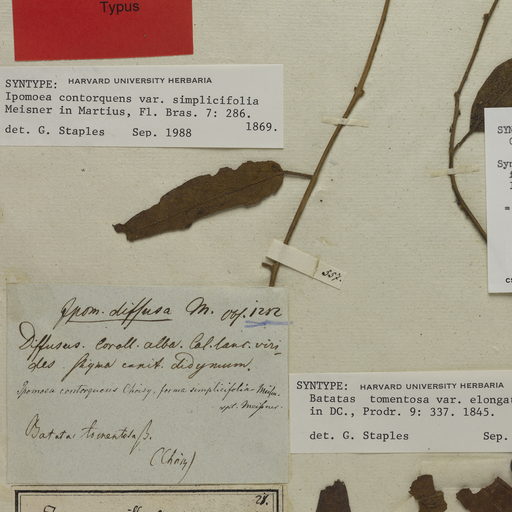 Typus
SYNTYPE: HARVARD UNIVERSITY HERBARIA
Ipomoea contorquens var. simplicifolia
Meisner in Martius, Fl. Bras. 7: 286.
1869.
det. G. Staples Sep. 1988
SYN
Syn
=
353.
Ipom. diffusa M. Obs. 1252
Diffusus. Coroll. alba. Cal. lanc. viri-
des Stigma capit. didymum.
Ipomoea contorquens Choisy, forma simplicifolia Meisn.
Batatas tomentosa β.
(Choisy)
SYNTYPE: HARVARD UNIVERSITY HERBARIA
Batatas tomentosa var. elonga
in DC., Prodr. 9: 337. 1845.
det. G. Staples Sep.